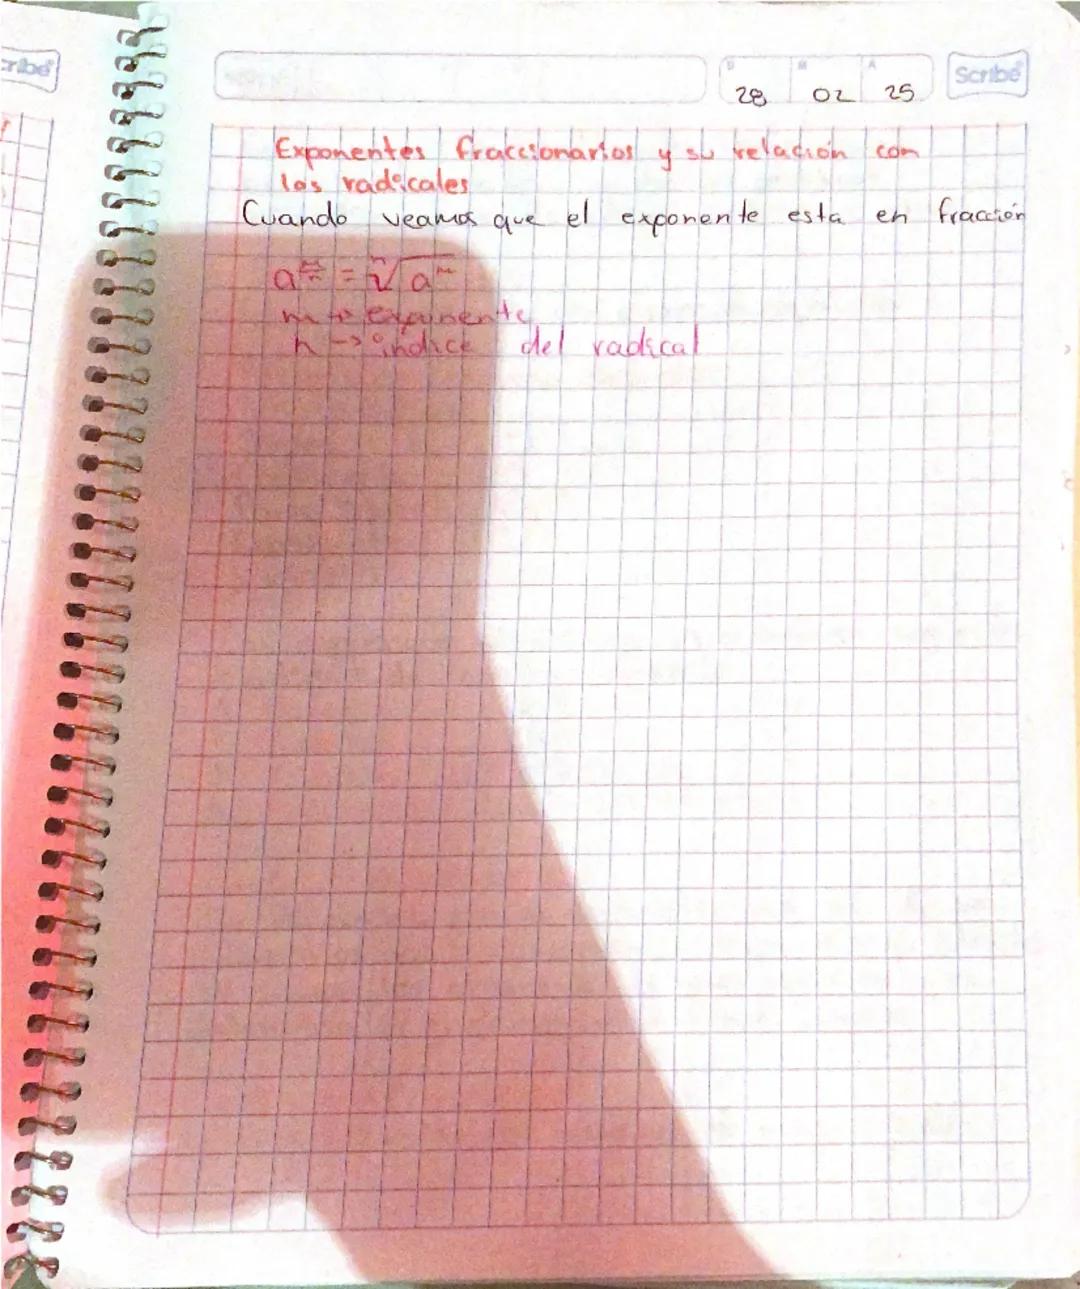 cribe
D M A
28 02 25
Scribe
Exponentes fraccionarios y su relación con
los radicales
Cuando veamos que el exponente esta en fracción
a^(m/n) = ⁿ√a^m
m → exponente
n → indice del radical